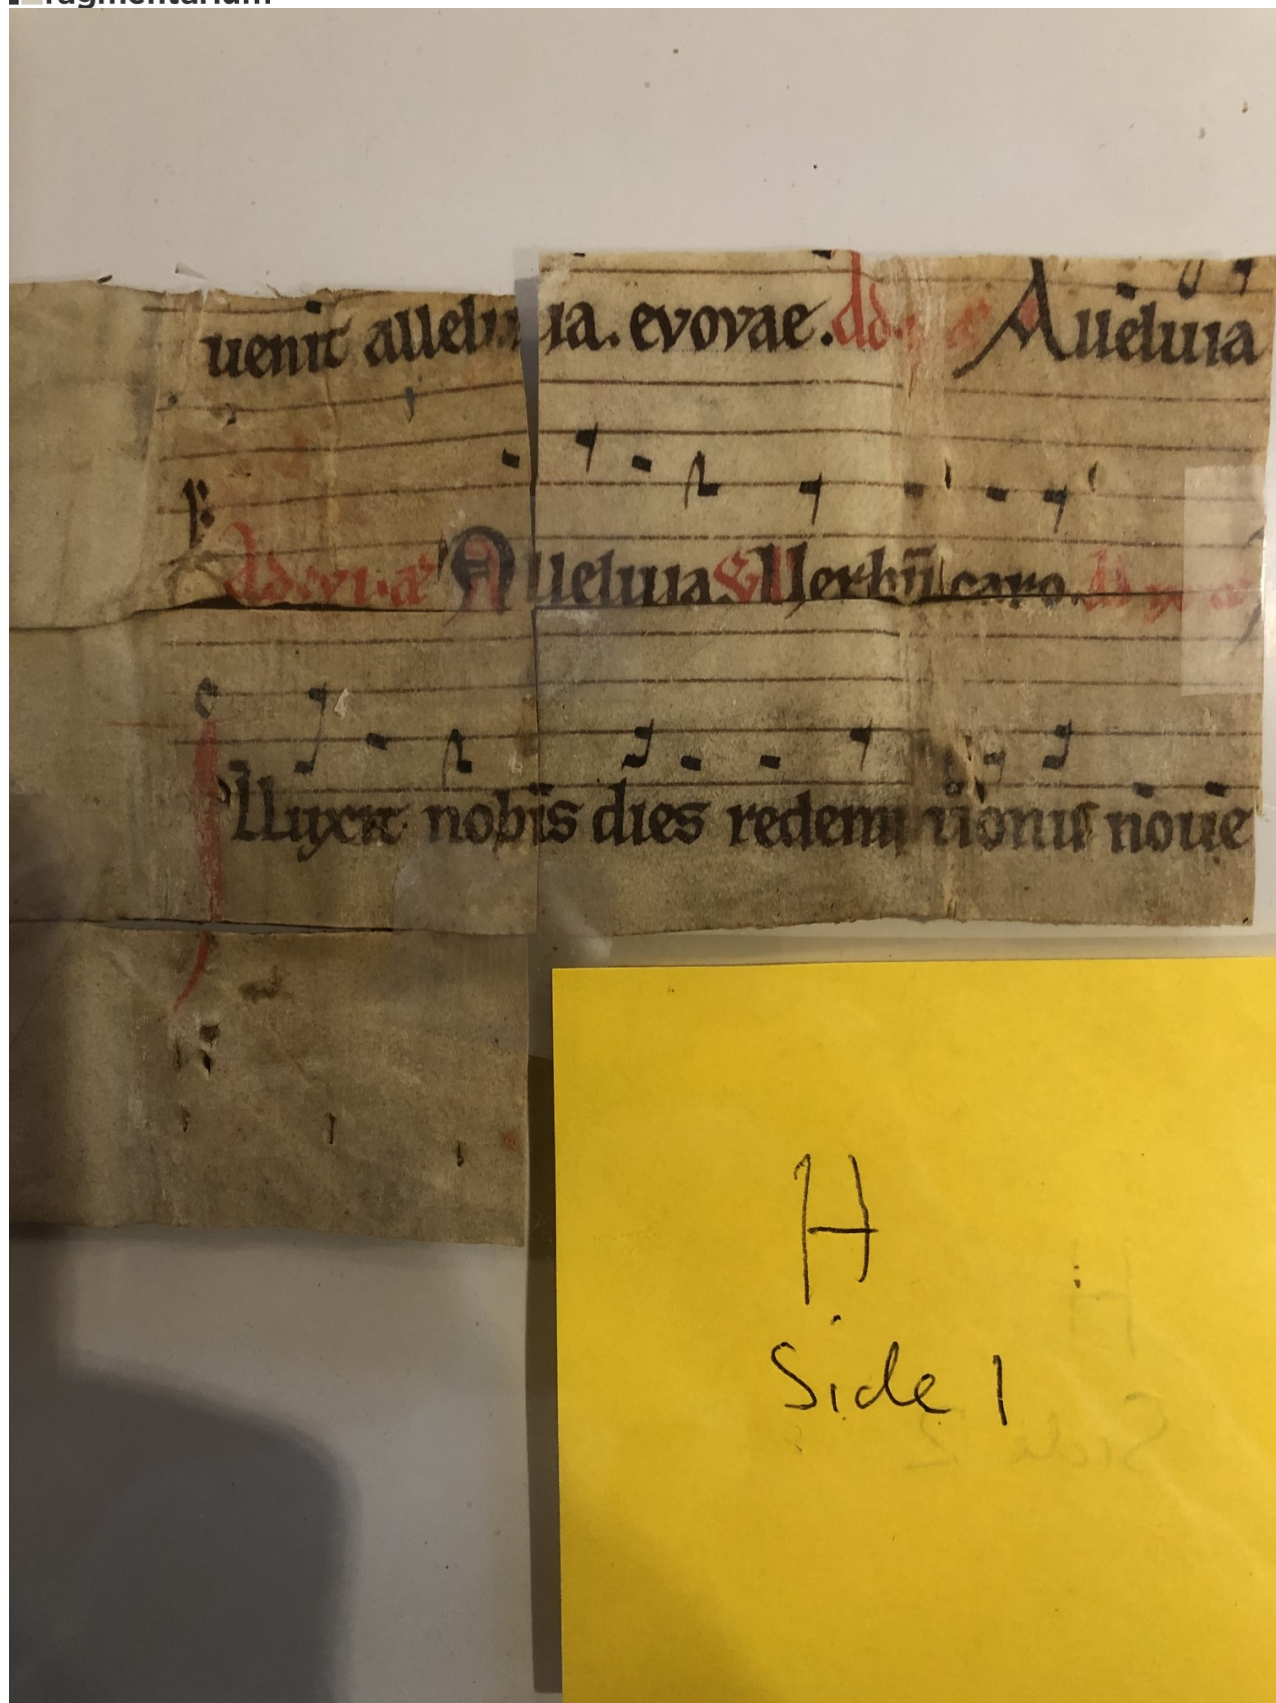 ragmentarium
uenit alleluia. evovae. Ad Alleluia
Ad Alleluia Verbū caro.
Illuxit nobis dies redemptionis noue
H
Side 1